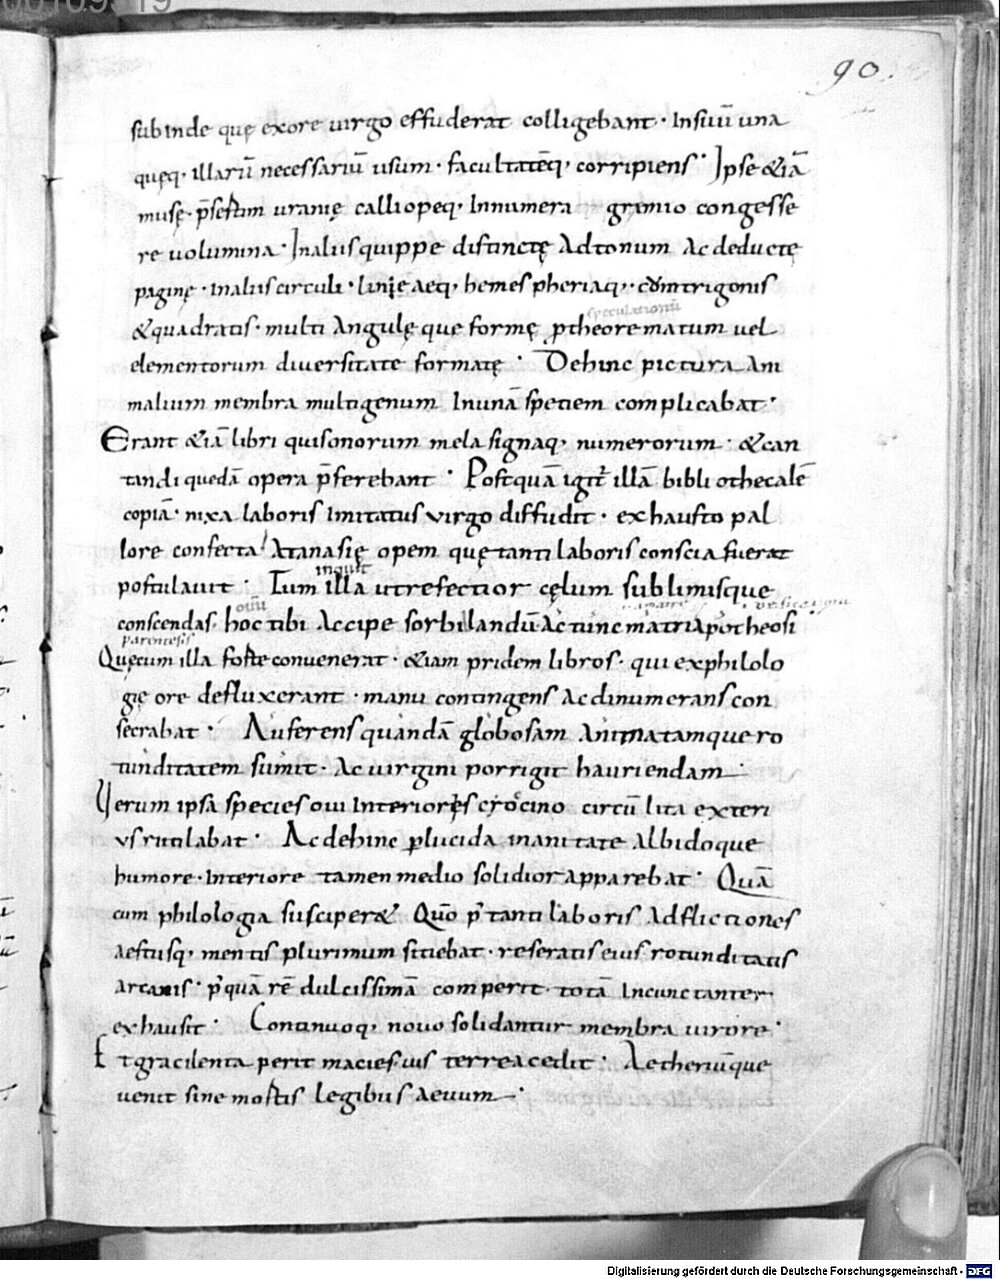 90.
subinde quę exore uirgo effuderat colligebant · Insuū una
quęq; illarū necessariū usum · facultatēq; corripiens · Ipse &iā
musę · p̄sertim uranię calliopeq; Innumera gremio congesse
re uolumina · Inaliis quippe distinctę Adtonum Ac deductę
paginę · inaliis circuli · linięaeq; hemespheriaq; · cūmtrigonis
speculationū
&quadratis · multi Angulęque formę p̱theorematum uel
elementorum diuersitate formatę · Dehinc pictura Ani
malium membra multigenum Inunā speciem complicabat ·
Erant &iā libri quisonorum mela signaq; numerorum · &can
tandi quedā opera p̄ferebant · Postquā igit̄ illā bibliothecalē
copiā · nixa laboris Imitatus virgo diffudit · exhausto pal
lore confecta Atanasię opem quętanti laboris conscia fuerat
inquit
postulauit · Tum illa utrefectior cęlum sublimisque
ouū
conscendas · hoc tibi Accipe sorbilandū Ac tunc matri Apotheosi
parentesis
Quęcum illa forte conuenerat · &iam pridem libros · qui exphilolo
gię ore defluxerant · manu contingens Ac dinumerans con
secrabat · Auferens quandā globosam Animatamque ro
tunditatem sumit · Ac uirgini porrigit hauriendam ·
Uerum ipsa species oui Interiores crocino circū lita exteri
us rutilabat · Ac dehinc p̱lucida inanitate Albidoque
humore · Interiore tamen medio solidior apparebat · Quā
cum philologia susciper& Quō p̄ tanti laboris Adflictiones
aestusq; mentis plurimum sitiebat · reseratis eius rotunditatis
arcanis · p̄quā rē dulcissimā comperit · totā Incunctanter
exhausit · Continuoq; nouo solidantur membra uirore ·
Et gracilenta perit macies uis terrea cedit · Aetheriūque
uenit sine mortis legibus aeuum ·
Digitalisierung gefördert durch die Deutsche Forschungsgemeinschaft - DFG